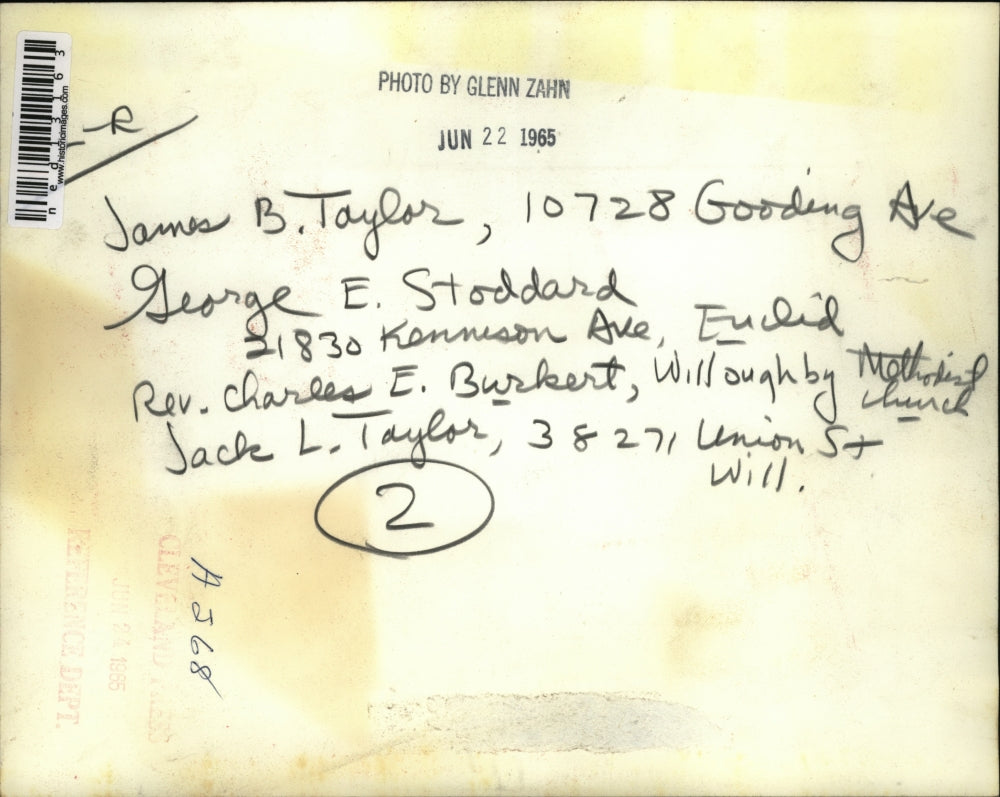 PHOTO BY GLENN ZAHN
JUN 22 1965
R
James B. Taylor, 10728 Gooding Ave
George E. Stoddard
21830 Kennison Ave, Euclid
Rev. Charles E. Burkert, Willoughby Methodist
church
Jack L. Taylor, 38271 Union St
Will.
2
A J68
CLEVELAND PRESS
JUN 24 1965
REFERENCE DEPT.
www.historicimages.com